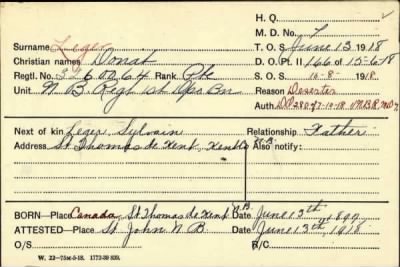 H. Q.
M. D. No. 7
Surname Leger T. O. S. June 13 1918
Christian names Donat D. O. Pt. II 166 of 15-6-18
Regtl. No. 3260064 Rank Pte S. O. S. 16-8-1918
Unit N. B. Regt 1st Dps Bn Reason Deserter
Auth. DO 280 of 7-10-18
Next of kin Leger, Sylvain Relationship Father
Address St Thomas de Kent, Kent Co N.B. Also notify:
BORN—Place Canada, St Thomas de Kent N.B. Date June 13th
ATTESTED—Place St John N. B. Date June 13th, 1918
O/S R/C
W. 22—75M-5-18. 1772-39 839.